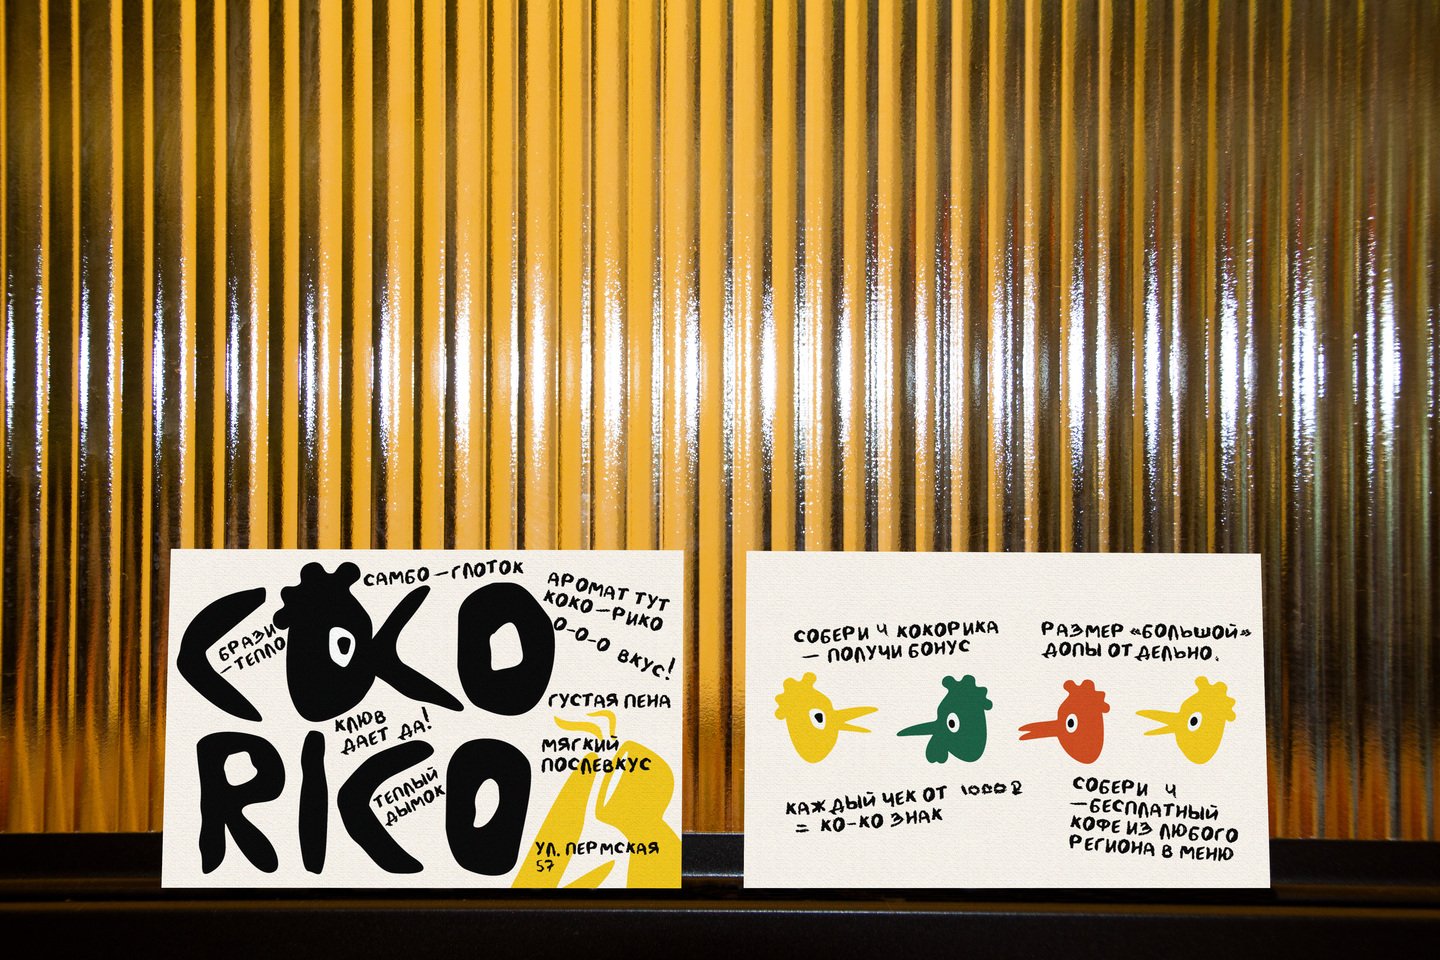 САМБО – ГЛОТОК
АРОМАТ ТУТ
КОКО – РИКО
О-О-О ВКУС!
COCO
БРАЗИ
– ТЕПЛО
КЛЮВ
ДАЕТ ДА!
ГУСТАЯ ПЕНА
МЯГКИЙ
ПОСЛЕВКУС
RICO
ТЕПЛЫЙ
ДЫМОК
УЛ. ПЕРМСКАЯ
57
СОБЕРИ 4 КОКОРИКА
— ПОЛУЧИ БОНУС
РАЗМЕР «БОЛЬШОЙ»
ДОПЫ ОТДЕЛЬНО.
КАЖДЫЙ ЧЕК ОТ 1000 ₽
= КО-КО ЗНАК
СОБЕРИ 4
—БЕСПЛАТНЫЙ
КОФЕ ИЗ ЛЮБОГО
РЕГИОНА В МЕНЮ